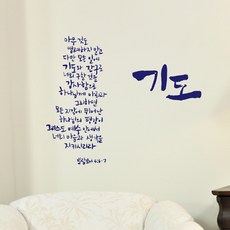 아무 것도
염려하지 말고
다만 모든 일에
기도와 간구로
너희 구할 것을
감사함으로
하나님께 아뢰라
그리하면
모든 지각에 뛰어난
하나님의 평강이
그리스도 예수 안에서
너희 마음과 생각을
지키시리라
빌립보서 4:6-7
기도